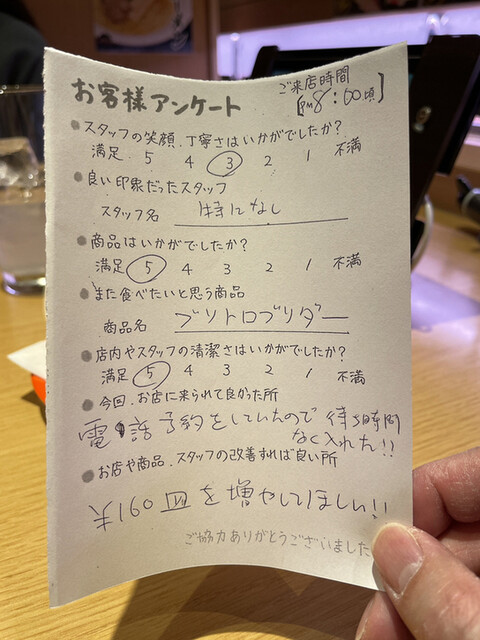 お客様アンケート
ご来店時間
[PM8:00頃]
●スタッフの笑顔、丁寧さはいかがでしたか?
満足 5 4 3 2 1 不満
●良い印象だったスタッフ
スタッフ名 特になし
●商品はいかがでしたか?
満足 5 4 3 2 1 不満
●また食べたいと思う商品
商品名 ブリトロブリダー
●店内やスタッフの清潔さはいかがでしたか?
満足 5 4 3 2 1 不満
●今回、お店に来られて良かった所
電話予約をしていたので待ち時間
なく入れた!!
●お店や商品、スタッフの改善すれば良い所
160皿を増やしてほしい!!
ご協力ありがとうございました